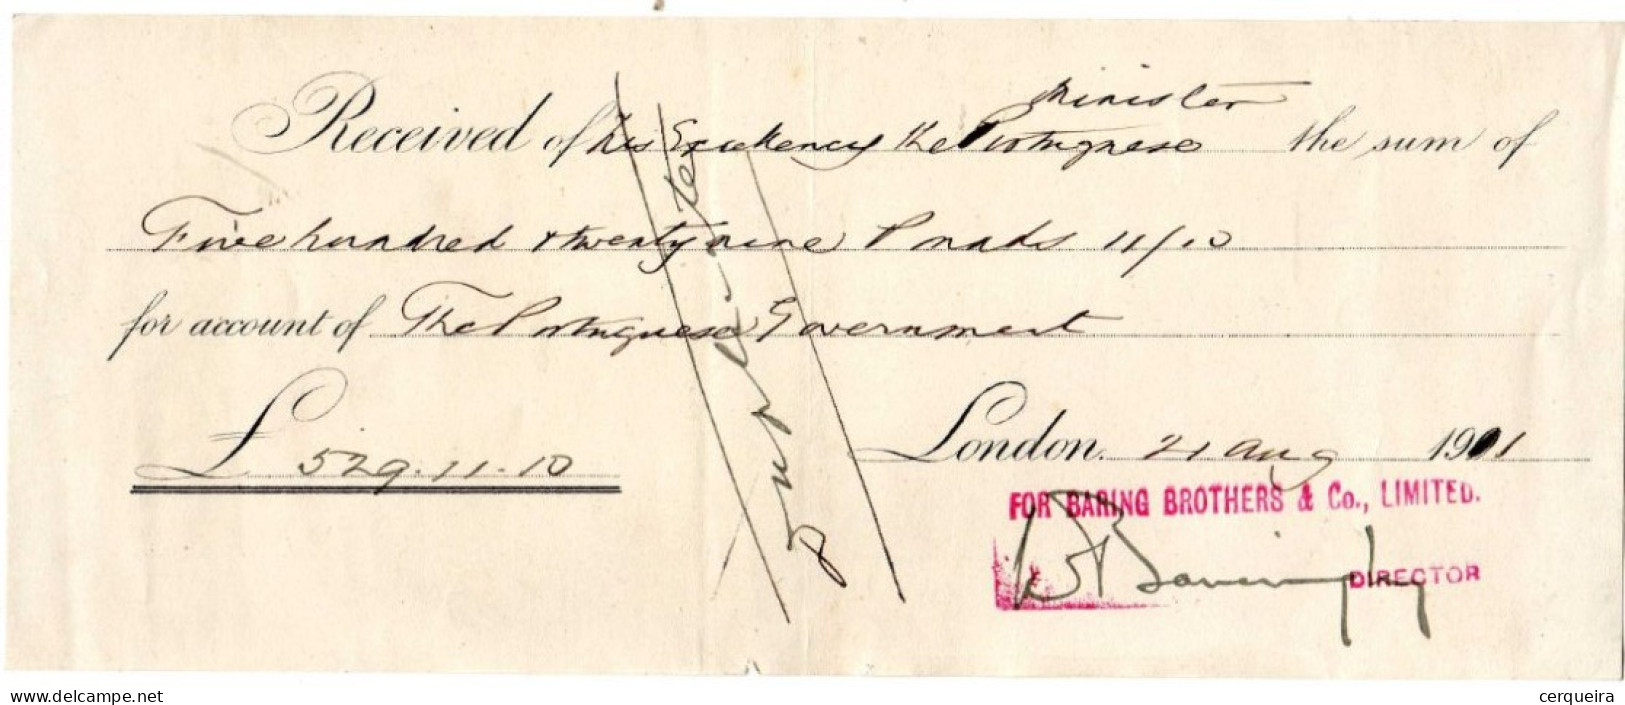 Minister
Received of His Excellency the Portuguese the sum of
Five hundred & twenty nine Pounds 11/10
for account of The Portuguese Government
£ 529.11.10
London. 21 Aug 1901
Duplicate
FOR BARING BROTHERS & Co., LIMITED.
DIRECTOR
www.delcampe.net
cerqueira